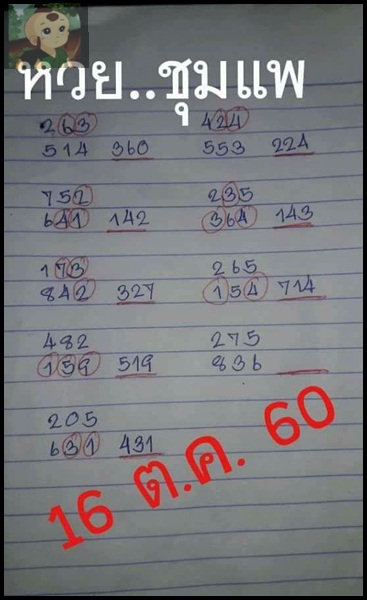 หวย..ชุมแพ
263
514 360
424
553 224
752
641 142
235
364 143
173
842 327
265
154 714
482
159 519
275
836
205
631 431
16 ต.ค. 60